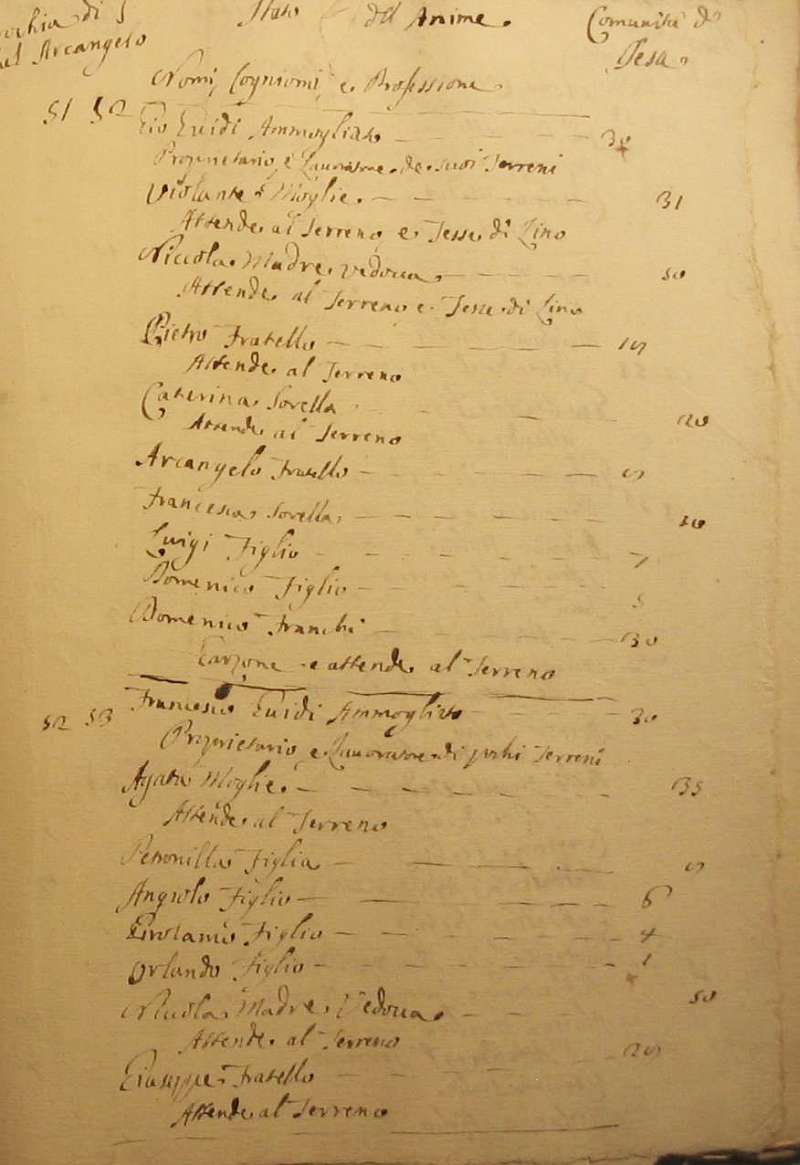 Stato dell Anime. Comunità di
el Arcangelo Pesa.
Nomi, Cogniomi, e Professione
51 52 Gio Guidi Ammogliato 30
Proprietario, e Lavoratore de suoi Terreni
Violante Moglie. 31
Attende al Terreno, e Tesse di Lino
Niccola Madre vedova 50
Attende al Terreno e Tesse di Lino
Pietro Fratello
Attende al Terreno
Caterina Sorella 20
Attende al Terreno
Arcangelo Fratello
Francesca Sorella 10
Luigi Figlio 7
Domenico Figlio 5
Domenico Franchi 30
Garzone e attende al Terreno
52 53 Francesco Guidi Ammogliato 30
Proprietario e Lavoratore di pochi Terreni
Agata Moglie. 35
Attende al Terreno
Petronilla Figlia
Angiolo Figlio 6
Girolamo Figlio 4
Orlando Figlio 1
Niccola Madre Vedova 50
Attende al Terreno
Giuseppe Fratello
Attende al Terreno